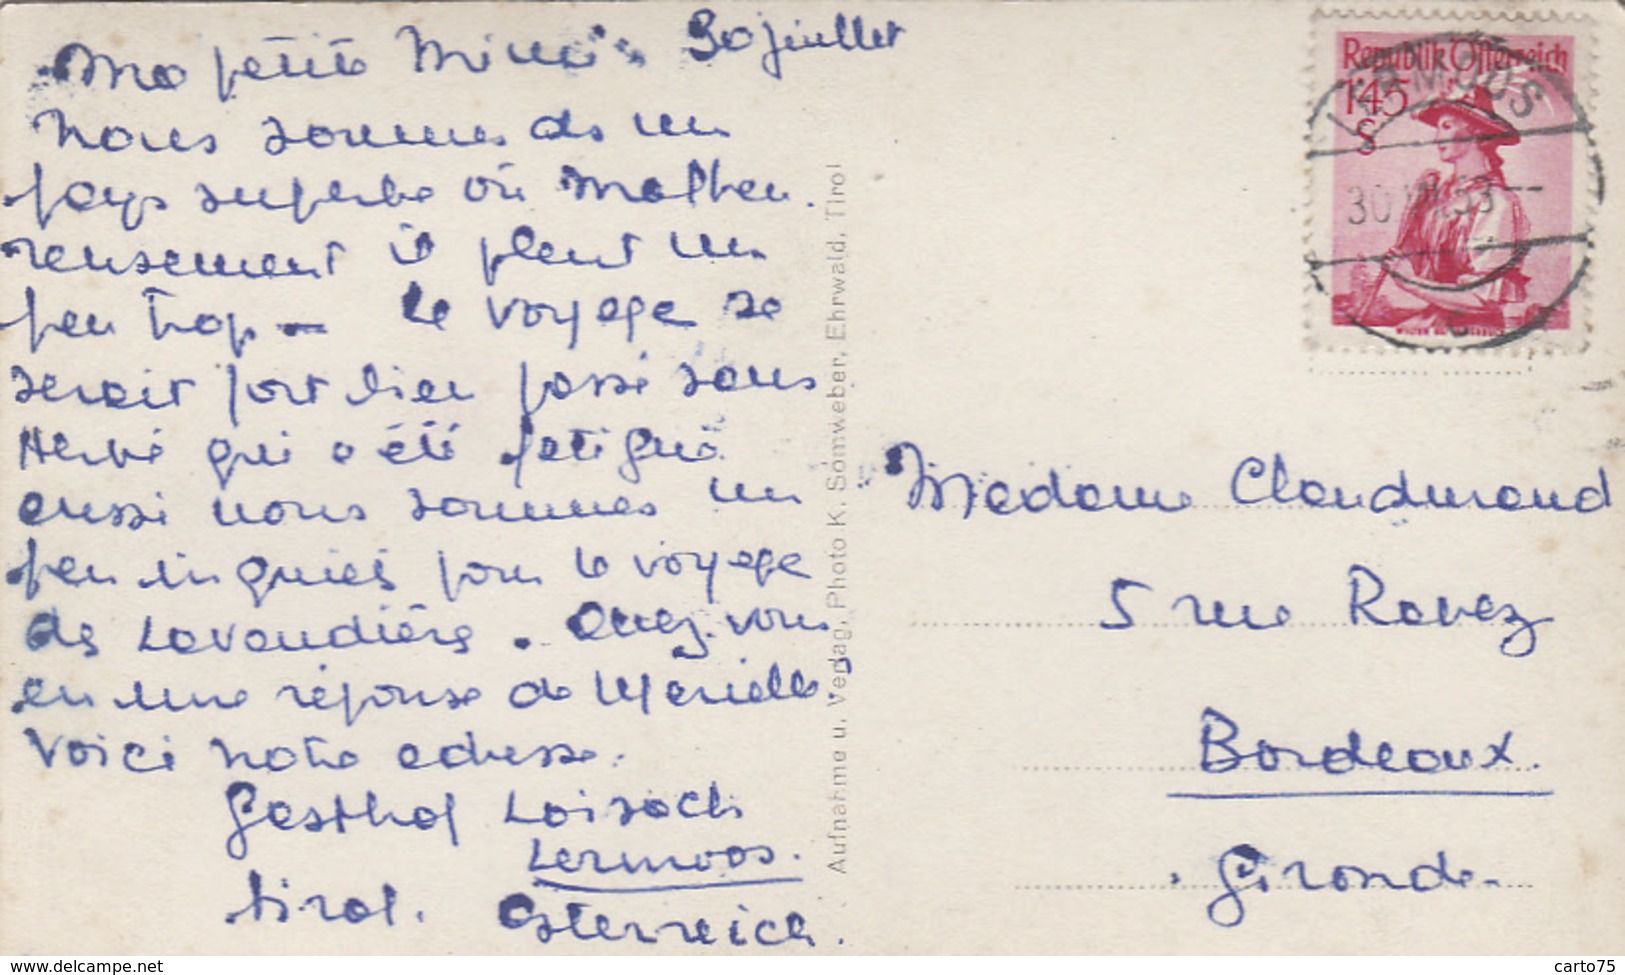 30 juillet
Ma petite Mimi
Nous sommes ds un
pays superbe où malheu.
reusement il pleut un
peu trop - Le voyage se
serait fort bien passé sans
Hervé qui a été fatigué
aussi nous sommes un
peu inquiets pour le voyage
de Lavandière. Avez-vous
eu une réponse de Marielle.
Voici notre adresse.
Gasthof Loisach
Lermoos.
Tirol. Osterreich.
Aufnahme u. Verlag, Photo K. Somweber, Ehrwald, Tirol
Republik Österreich
1'45
S
LERMOOS
30.VII.53
c
Madame
5 rue Ravez
Bordeaux.
Gironde.
carto75